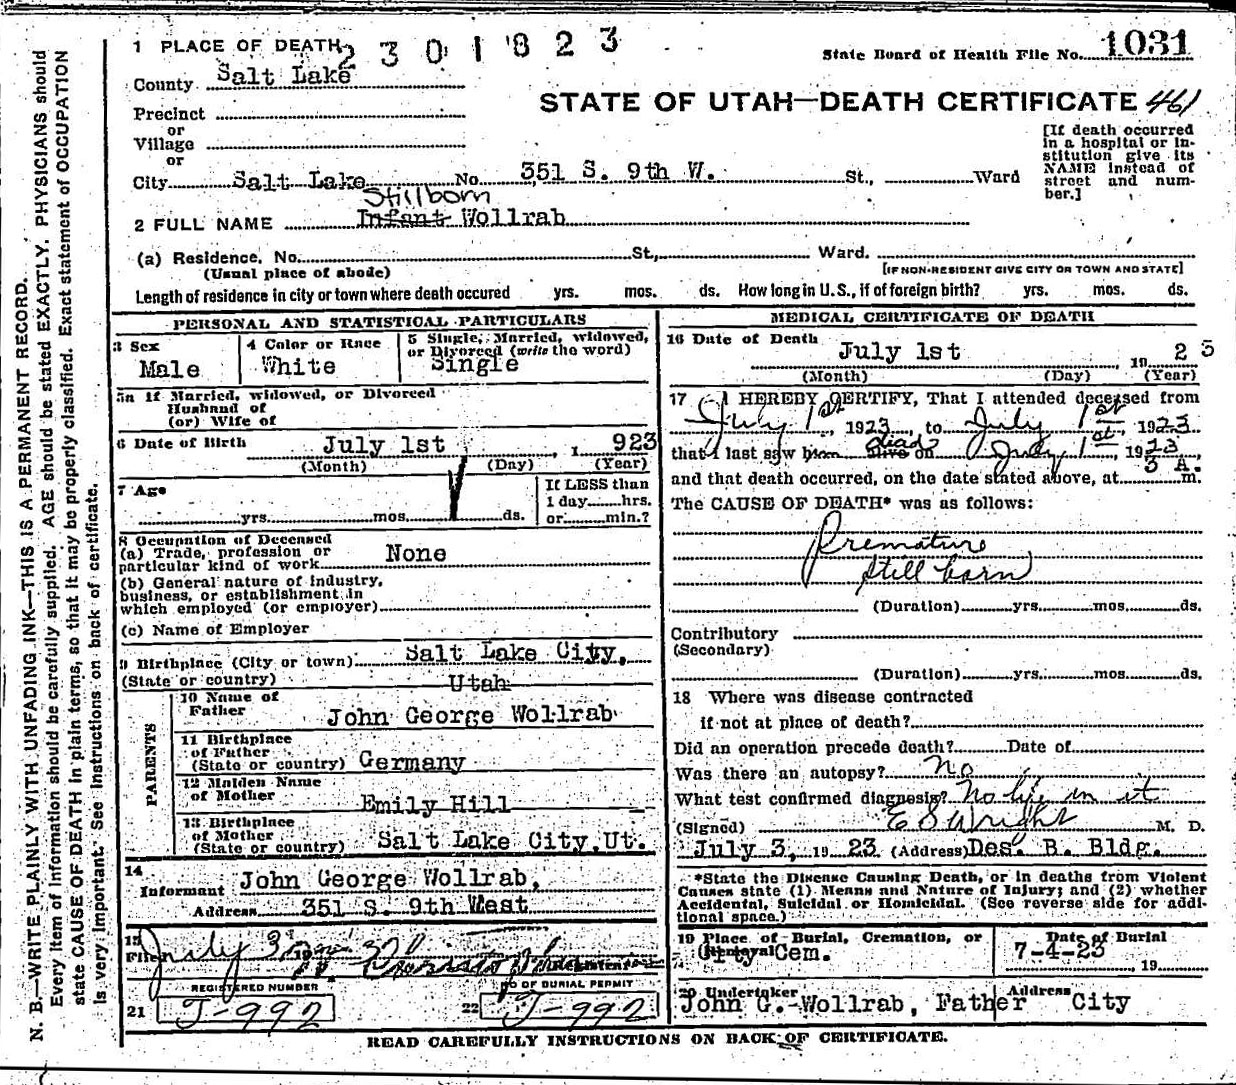 1 PLACE OF DEATH 2 3 0 1 8 2 3
State Board of Health File No. 1031
County Salt Lake
STATE OF UTAH—DEATH CERTIFICATE 461
Precinct
or
Village
or
City Salt Lake No. 351 S. 9th W. St., Ward
[If death occurred in a hospital or institution give its NAME instead of street and number.]
Stillborn
2 FULL NAME Infant Wollrab
(a) Residence, No. St., Ward.
(Usual place of abode) [IF NON-RESIDENT GIVE CITY OR TOWN AND STATE]
Length of residence in city or town where death occured yrs. mos. ds. How long in U.S., if of foreign birth? yrs. mos. ds.
PERSONAL AND STATISTICAL PARTICULARS
3 Sex Male
4 Color or Race White
5 Single, Married, widowed, or Divorced (write the word) Single
5a If Married, widowed, or Divorced
Husband of
(or) Wife of
6 Date of Birth July 1st, 1 923
(Month) (Day) (Year)
7 Age
yrs. mos. ds.
If LESS than
1 day hrs.
or min.?
8 Occupation of Deceased
(a) Trade, profession or
particular kind of work None
(b) General nature of industry,
business, or establishment in
which employed (or employer)
(c) Name of Employer
9 Birthplace (City or town) Salt Lake City,
(State or country) Utah
PARENTS
10 Name of
Father John George Wollrab
11 Birthplace
of Father
(State or country) Germany
12 Maiden Name
of Mother Emily Hill
13 Birthplace
of Mother
(State or country) Salt Lake City, Ut.
14
Informant John George Wollrab,
Address 351 S. 9th West
15
Filed July 3
REGISTERED NUMBER
21 J-992
NO OF BURIAL PERMIT
22 J-992
MEDICAL CERTIFICATE OF DEATH
16 Date of Death July 1st, 19 23
(Month) (Day) (Year)
17 I HEREBY CERTIFY, That I attended deceased from
July 1st, 1923, to July 1st, 1923
that I last saw him alive on dead July 1st, 1923
and that death occurred, on the date stated above, at 3 A. m.
The CAUSE OF DEATH* was as follows:
Premature
Still born
(Duration) yrs. mos. ds.
Contributory
(Secondary)
(Duration) yrs. mos. ds.
18 Where was disease contracted
if not at place of death?
Did an operation precede death? Date of
Was there an autopsy? No
What test confirmed diagnosis? No life in it
(Signed) E S Wright M. D.
July 3, 19 23 (Address) Des. B. Bldg.
*State the Disease Causing Death, or in deaths from Violent
Causes state (1) Means and Nature of Injury; and (2) whether
Accidental, Suicidal or Homicidal. (See reverse side for addi-
tional space.)
19 Place of Burial, Cremation, or
Removal City Cem.
Date of Burial
7-4-23, 19
20 Undertaker Address
John G. Wollrab, Father City
READ CAREFULLY INSTRUCTIONS ON BACK OF CERTIFICATE.
N. B.—WRITE PLAINLY WITH UNFADING INK—THIS IS A PERMANENT RECORD.
Every item of information should be carefully supplied. AGE should be stated EXACTLY. PHYSICIANS should
state CAUSE OF DEATH in plain terms, so that it may be properly classified. Exact statement of OCCUPATION
is very important. See instructions on back of certificate.